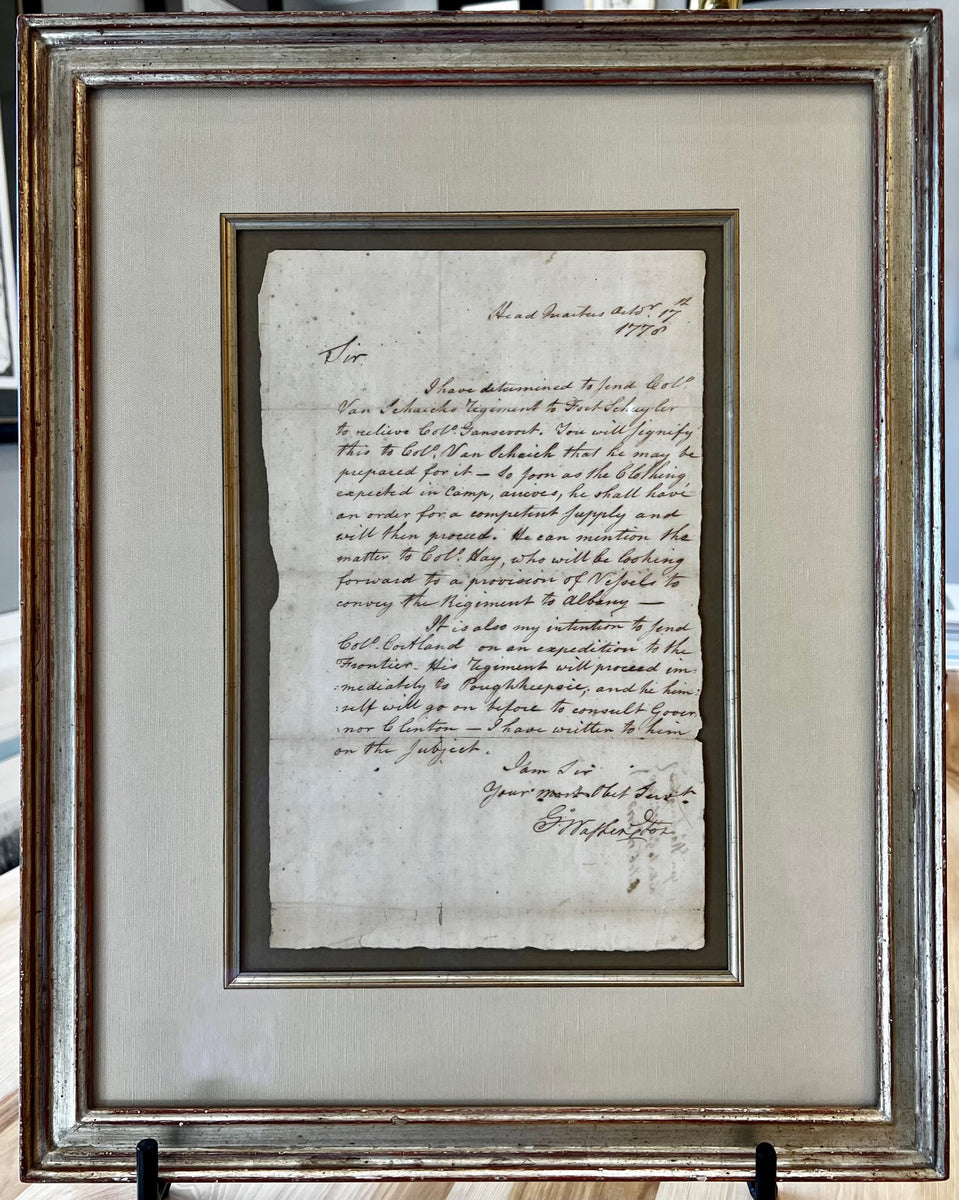 Head Quarters Octo.r 17th
1778
Sir.
I have determined to send Col.o
Van Schaicks Regiment to Fort Schuyler
to relieve Col.o Gansevort. You will signify
this to Col.o Van Schaick that he may be
prepared for it — So soon as the Clothing
expected in Camp, arrives, he shall have
an order for a competent supply and
will then proceed. He can mention the
matter to Col.o Hay, who will be looking
forward to a provision of Vessels to
convey the Regiment to Albany —
It is also my intention to send
Col.o Cortland on an expedition to the
Frontier. His Regiment will proceed im:
:mediately to Poughkeepsie, and he him:
:self will go on before to consult Gover
:nor Clinton — I have written to him
on the subject.
I am Sir
Your most Obet Servt.
Go Washington